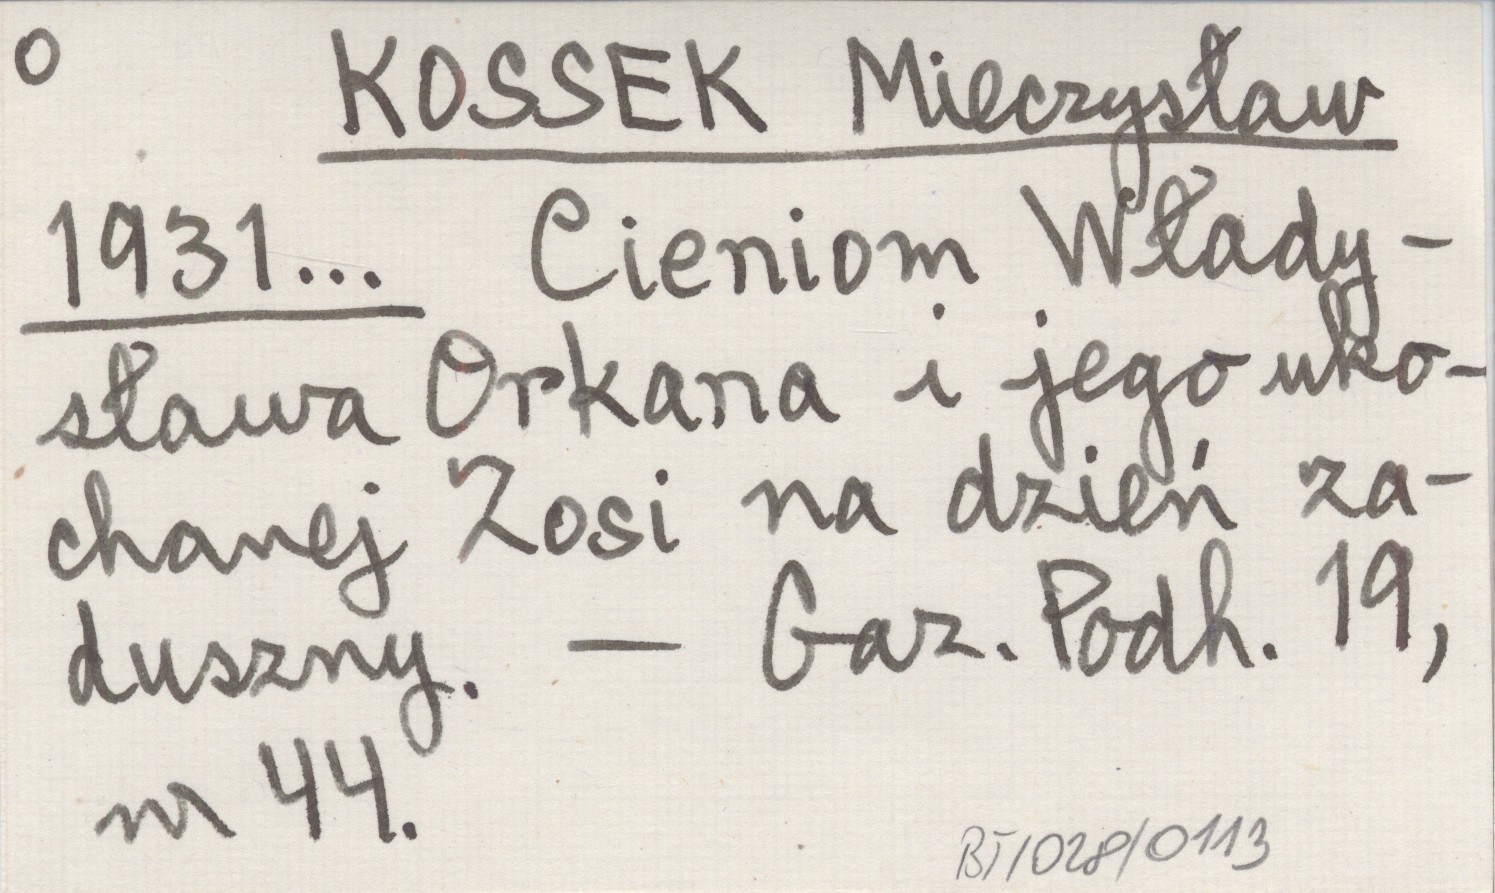 O KOSSEK Mieczysław
1931... Cieniom Włady-
sława Orkana i jego uko-
chanej Zosi na dzień za-
duszny. — Gaz. Podh. 19,
nr 44.
BT/028/0113